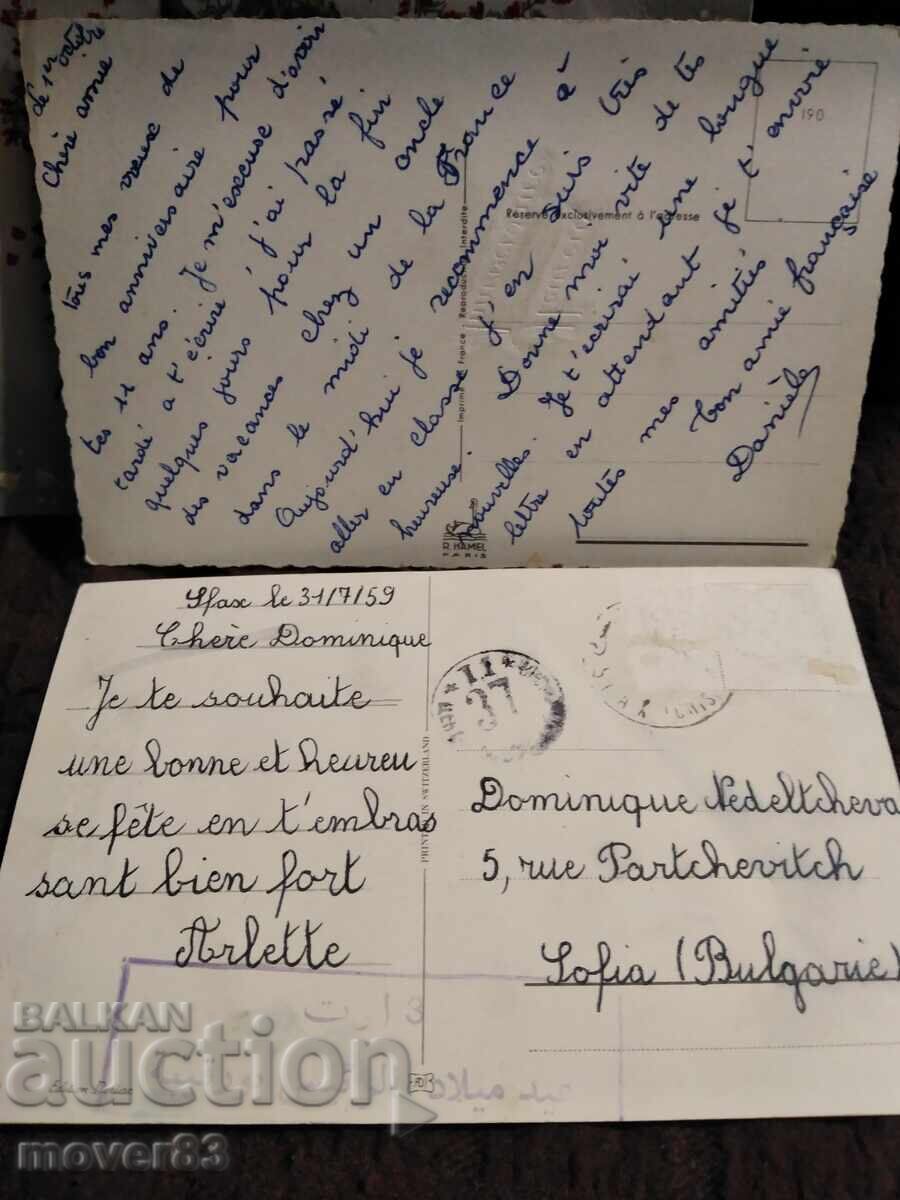 le 1er octobre
Chère amie
tous mes vœux de
bon anniversaire pour
tes 11 ans. Je m'excuse d'avoir
tardé a t'écrire, j'ai passé
quelques jours pour la fin
des vacances chez un oncle
dans le midi de la France
Aujourd'hui je recommence à
aller en classe j'en suis très
heureuse. Donne moi vite de tes
nouvelles. Je t'ecrirai une longue
lettre en attendant je t'envoie
toutes mes amitiés
ton amie française
Danièle
190
Réservé exclusivement à l'adresse
Imprimé en France - Reproduction Interdite
R. HAMEL
PARIS
Sfax le 31/7/59
Chère Dominique
Je te souhaite
une bonne et heureu
se fête en t'embras
sant bien fort
Arlette
PRINTED IN SWITZERLAND
11
37
Dominique Nedeltcheva
5, rue Partchevitch
Sofia (Bulgarie)
3 ارت
عيد ميلاد
BALKAN
auction
mover83